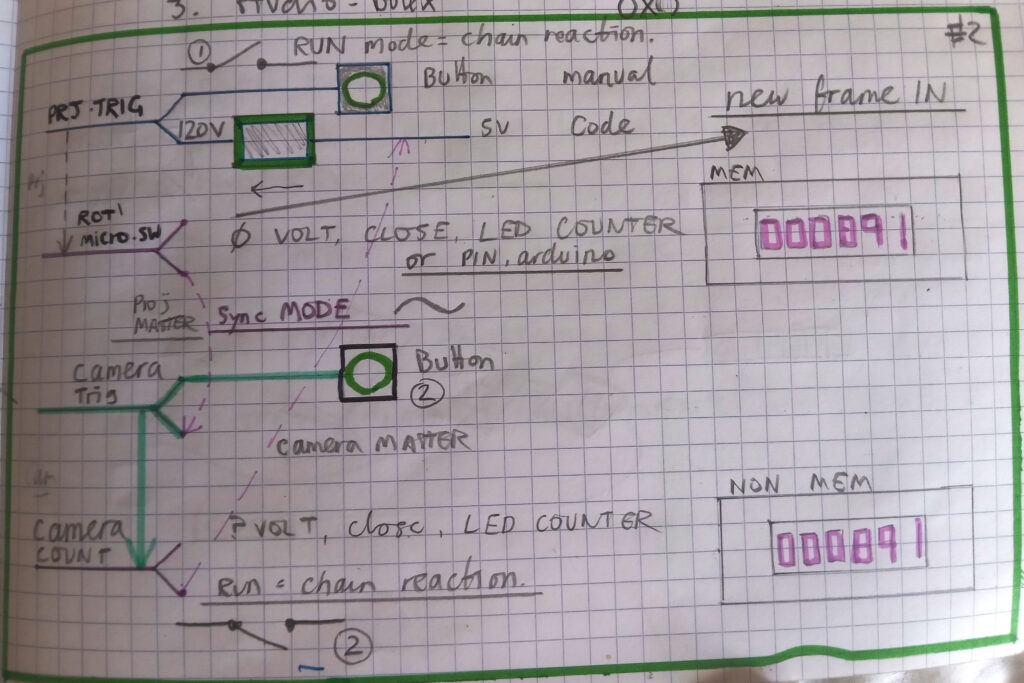 3. Audio-
#2
① RUN mode = chain reaction.
Button manual
PRJ.TRIG
120V
5V Code
new frame IN
MEM
000891
ROT'
micro.SW
Ø VOLT, CLOSE, LED COUNTER
or PIN, arduino
Proj
MASTER
Sync MODE
Camera
Trig
Button
②
Camera MASTER
NON MEM
000891
Camera
COUNT
? VOLT, close, LED COUNTER
Run = chain reaction.
②